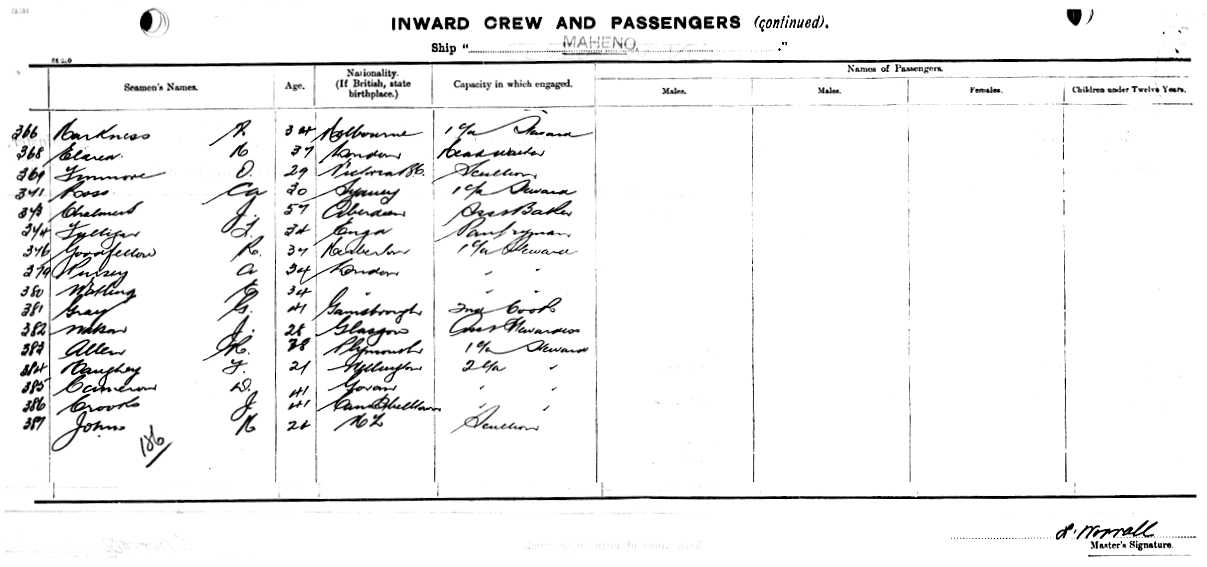 INWARD CREW AND PASSENGERS (continued).
Ship " MAHENO. "
Seamen's Names. Age. Nationality. (If British, state birthplace.) Capacity in which engaged. Names of Passengers.
Males. Males. Females. Children under Twelve Years.
366 Harkness 34 Melbourne 1 c/a Steward
368 K 37 London Headwaiter
369 O. 29 Victoria Scullion
341 Ross Ca 30 Sydney 1 c/a Steward
343 Chalmers J. 57 Aberdeen Asst Baker
344 34 Pantryman
346 Goodfellow R. 37 1 c/a Steward
379 Pursey a 34 London " "
380 Watling 34 " "
381 Gray G. 41 Gainsborough 2nd Cook
382 J. 28 Glasgow Asst Stewardess
383 Allen H. 28 Plymouth 1 c/a Steward
384 Haughey F. 21 Wellington 2 c/a "
385 Cameron D. 41 Govan " "
386 Crooks J. 41 Campbelltown " "
387 Johns K 24 NZ Scullion
186
Worrall
Master's Signature.